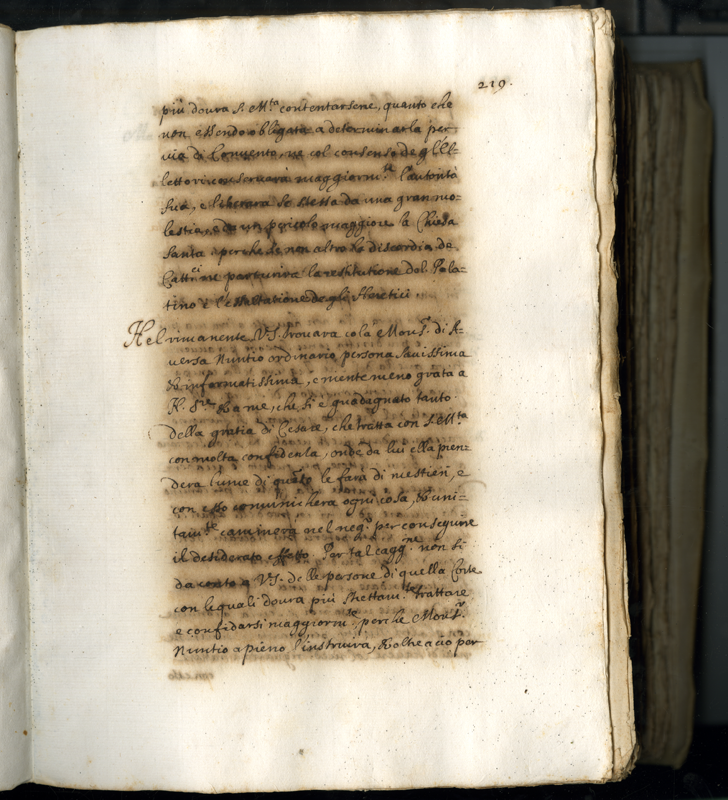 219.
più dourà S. M.ta contentarsene, quanto che
non essendo obligata a determinarla per
via di Conuento, ne col consenso de gl'El=
lettori conseruarà maggiorm.te l'autorità
sua, e liberarà se stessa da una gran mo=
lestia, e da un pericolo maggiore la Chiesa
Santa perche se non altro la discordia de
Catt.ci ne parturirà la restitutione del Pala=
tino è l'essaltatione degli Heretici.
Nel rimanente V.S. trouarà colà Mons.r di A=
uersa Nuntio ordinario persona sauissima
& informatissima, e niente meno grata a
N. S.re & a me, che si è guadagnato tanto
della gratia di Cesare, che tratta con S. M.ta
con molta confidenza, onde da lui ella pren=
derà lume di quãto le farà di mestieri, e
con esso comunicherà ogni cosa, & uni=
tam.te caminerà nel neg.o per conseguire
il desiderato effetto. Per tal cagg.ne non si
da conto a V.S. delle persone di quella Corte
con le quali dourà più strettam.te trattare
e confidarsi maggiorm.te, perche Mons.r
Nuntio a pieno l'instruirà, & oltre a ciò per